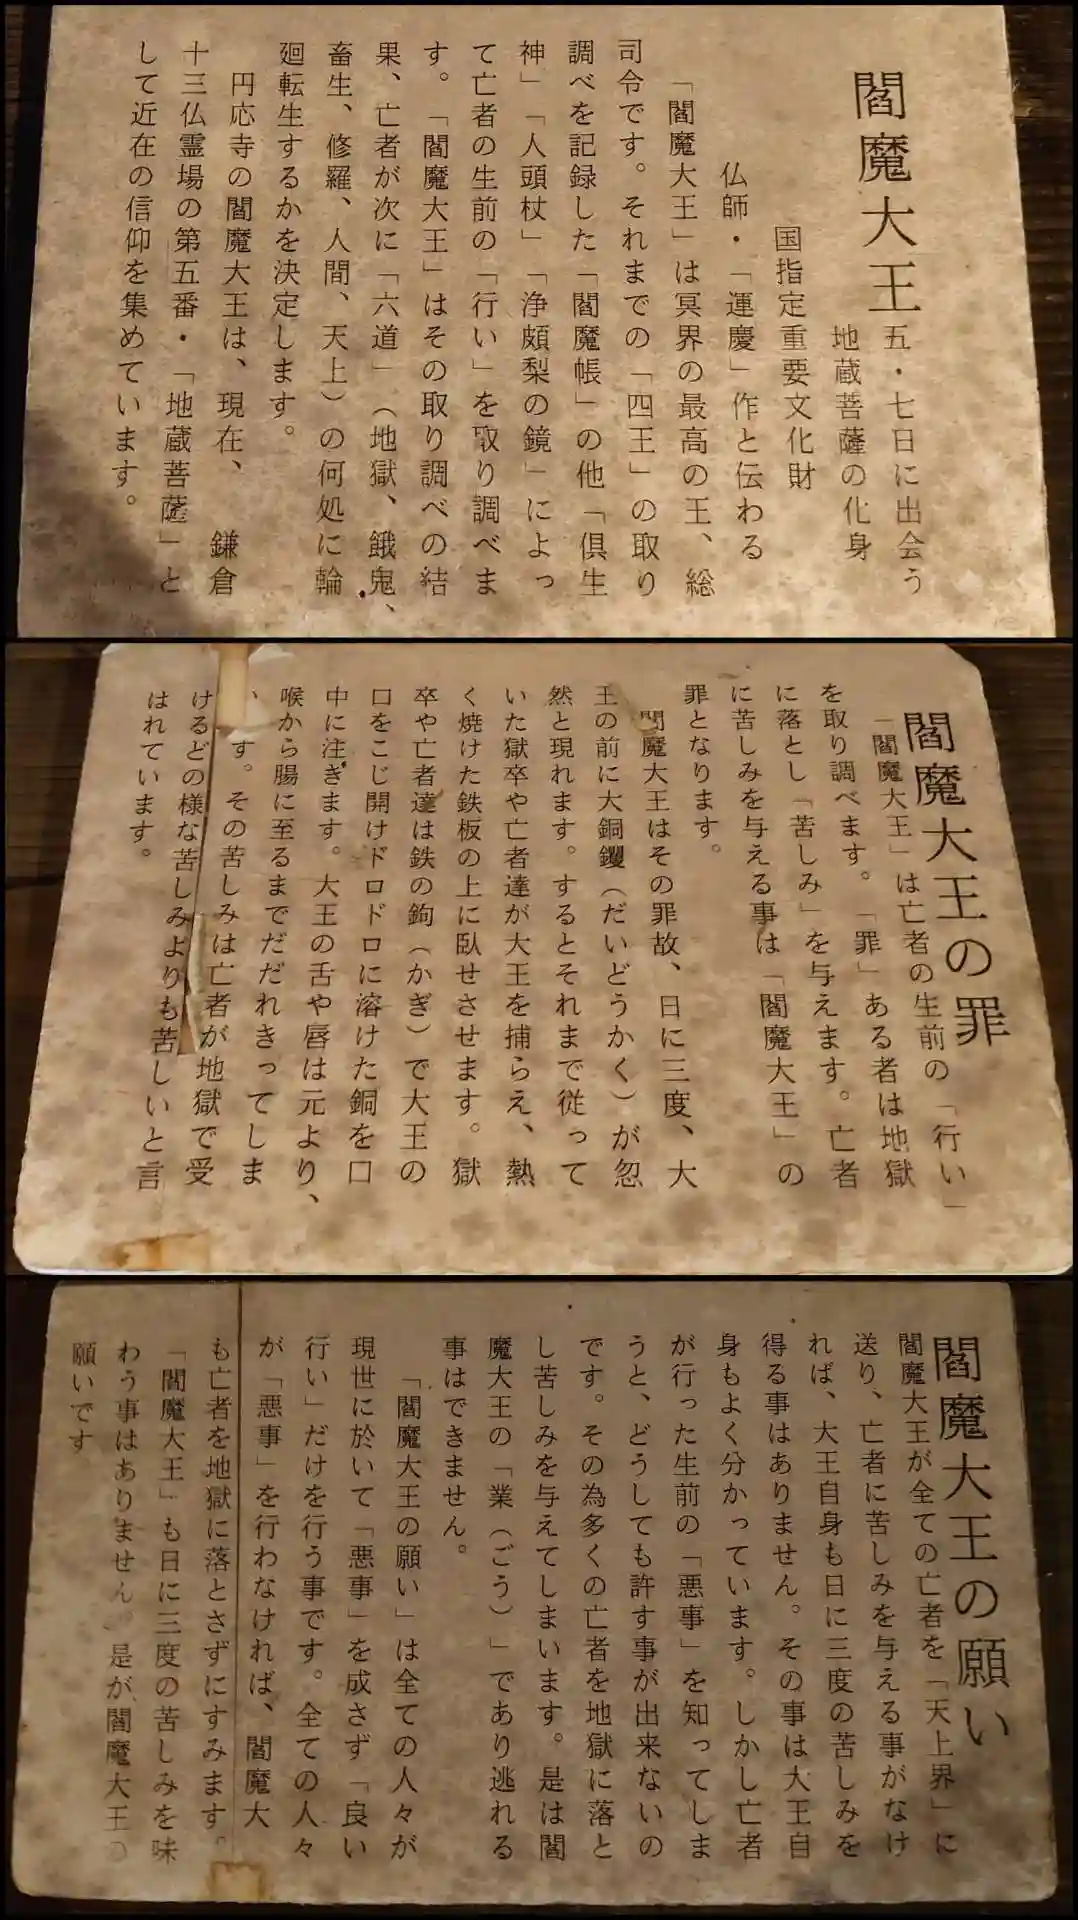 閻魔大王
五・七日に出会う
地蔵菩薩の化身
国指定重要文化財
仏師・「運慶」作と伝わる
「閻魔大王」は冥界の最高の王、総
司令です。それまでの「四王」の取り
調べを記録した「閻魔帳」の他「倶生
神」「人頭杖」「浄頗梨の鏡」によっ
て亡者の生前の「行い」を取り調べま
す。「閻魔大王」はその取り調べの結
果、亡者が次に「六道」（地獄、餓鬼、
畜生、修羅、人間、天上）の何処に輪
廻転生するかを決定します。
円応寺の閻魔大王は、現在、鎌倉
十三仏霊場の第五番・「地蔵菩薩」と
して近在の信仰を集めています。
閻魔大王の罪
「閻魔大王」は亡者の生前の「行い」
を取り調べます。「罪」ある者は地獄
に落とし「苦しみ」を与えます。亡者
に苦しみを与える事は「閻魔大王」の
罪となります。
閻魔大王はその罪故、日に三度、大
王の前に大銅钁（だいどうかく）が忽
然と現れます。するとそれまで従って
いた獄卒や亡者達が大王を捕らえ、熱
く焼けた鉄板の上に臥せさせます。獄
卒や亡者達は鉄の鉤（かぎ）で大王の
口をこじ開けドロドロに溶けた銅を口
中に注ぎます。大王の舌や唇は元より、
喉から腸に至るまでだだれきってしま
す。その苦しみは亡者が地獄で受
けるどの様な苦しみよりも苦しいと言
はれています。
閻魔大王の願い
閻魔大王が全ての亡者を「天上界」に
送り、亡者に苦しみを与える事がなけ
れば、大王自身も日に三度の苦しみを
得る事はありません。その事は大王自
身もよく分かっています。しかし亡者
が行った生前の「悪事」を知ってしま
うと、どうしても許す事が出来ないの
です。その為多くの亡者を地獄に落と
し苦しみを与えてしまいます。是は閻
魔大王の「業（ごう）」であり逃れる
事はできません。
「閻魔大王の願い」は全ての人々が
現世に於いて「悪事」を成さず「良い
行い」だけを行う事です。全ての人々
が「悪事」を行わなければ、閻魔大
も亡者を地獄に落とさずにすみます。
「閻魔大王」も日に三度の苦しみを味
わう事はありません。是が閻魔大王の
願いです